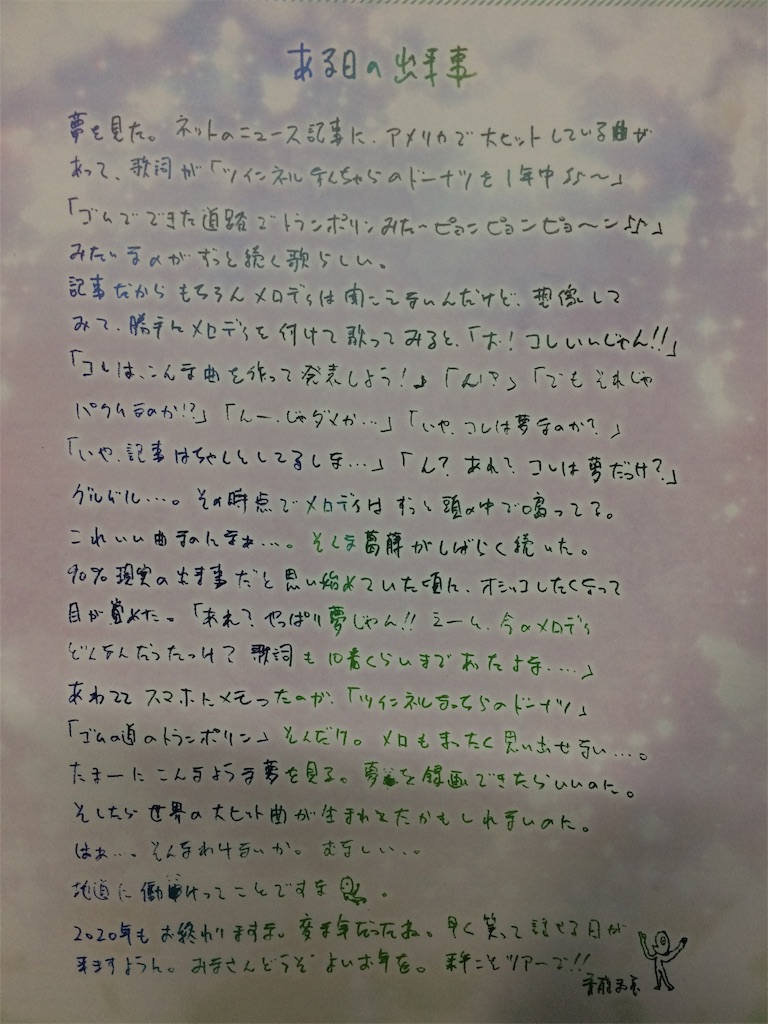 ある日の出来事
夢を見た。ネットのニュース記事に、アメリカで大ヒットしている曲が
あって、歌詞が「ツインネルなんちゃらのドーナツを1年中♪♪〜」
「ゴムでできた道路でトランポリンみた〜ピョンピョンピョ〜ン♪♪」
みたいなのがずっと続く歌らしい。
記事だからもちろんメロディは聞こえないんだけど、想像して
みて、勝手にメロディを付けて歌ってみると、「お!コレいいじゃん!!」
「コレは、こんな曲を作って発表しよう!」「ん!?」「でもそれじゃ
パクリなのか!?」「んー、じゃダメか…」「いや、コレは夢なのか?」
「いや、記事はちゃんとしてるしな…」「ん?あれ?コレは夢だっけ?」
グルグル…。その時点でメロディはずっと頭の中で鳴ってる。
これいい曲なのになぁ…。そんな葛藤がしばらく続いた。
90%現実の出来事だと思い始めていた頃に、オシッコしたくなって
目が覚めた。「あれ?やっぱり夢じゃん!!えーん、今のメロディ
どんなんだったっけ?歌詞も10番くらいまであったよな....」
あわててスマホにメモったのが、「ツインネルなっちらのドーナツ」
「ゴムの道のトランポリン」そんだけ。メロもまったく思い出せない…。
たまーにこんなような夢を見る。夢を録画できたらいいのに。
そしたら世界の大ヒット曲が生まれてたかもしれないのに。
はぁ…。そんなわけないか。むなしい..。
地道に働けってことですな。
2020年もお終わりますな。変な年だったね。早く笑って話せる日が
来ますように。みなさんどうぞよいお年を。来年こそツアーで!!